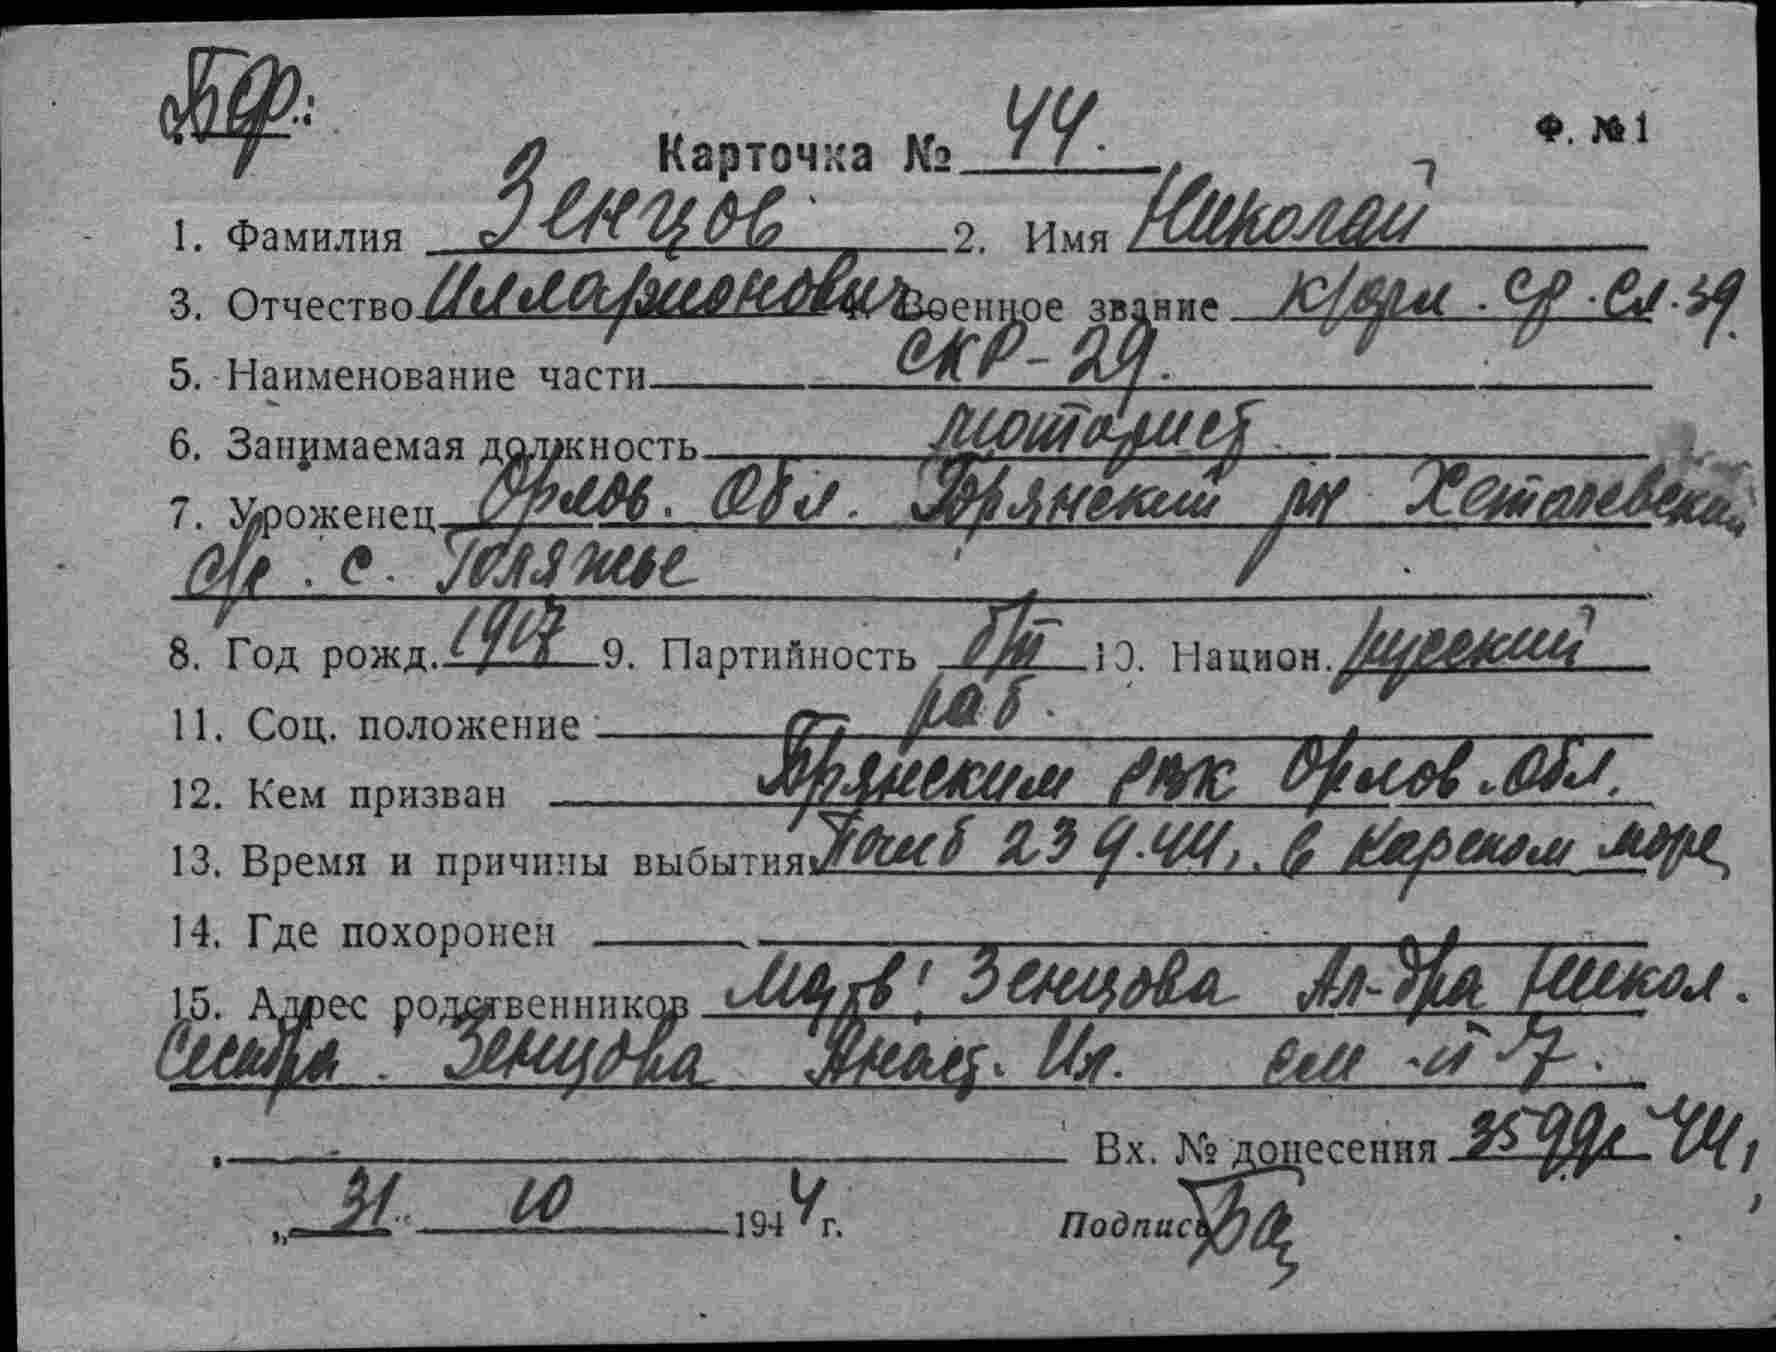 БФ.:
Карточка № 44. Ф. №1
1. Фамилия Зенцов 2. Имя Николай
3. Отчество Илларионович 4. Военное звание к/фл. ср. сл. 39.
5. Наименование части СКР-29.
6. Занимаемая должность моторист
7. Уроженец Орлов. Обл. Брянский рн
с/с. с. Голяжье
8. Год рожд. 1907 9. Партийность б/п 10. Национ. русский
11. Соц. положение раб.
12. Кем призван Брянским рвк Орлов. Обл.
13. Время и причины выбытия Погиб 23 9.44г. в Карском море
14. Где похоронен
15. Адрес родственников Мать: Зенцова Ал-дра Никол.
Сестра. Зенцова Анаст. Ил. см. п 7.
Вх. № донесения 44г
„31" 10 1944 г. Подпись